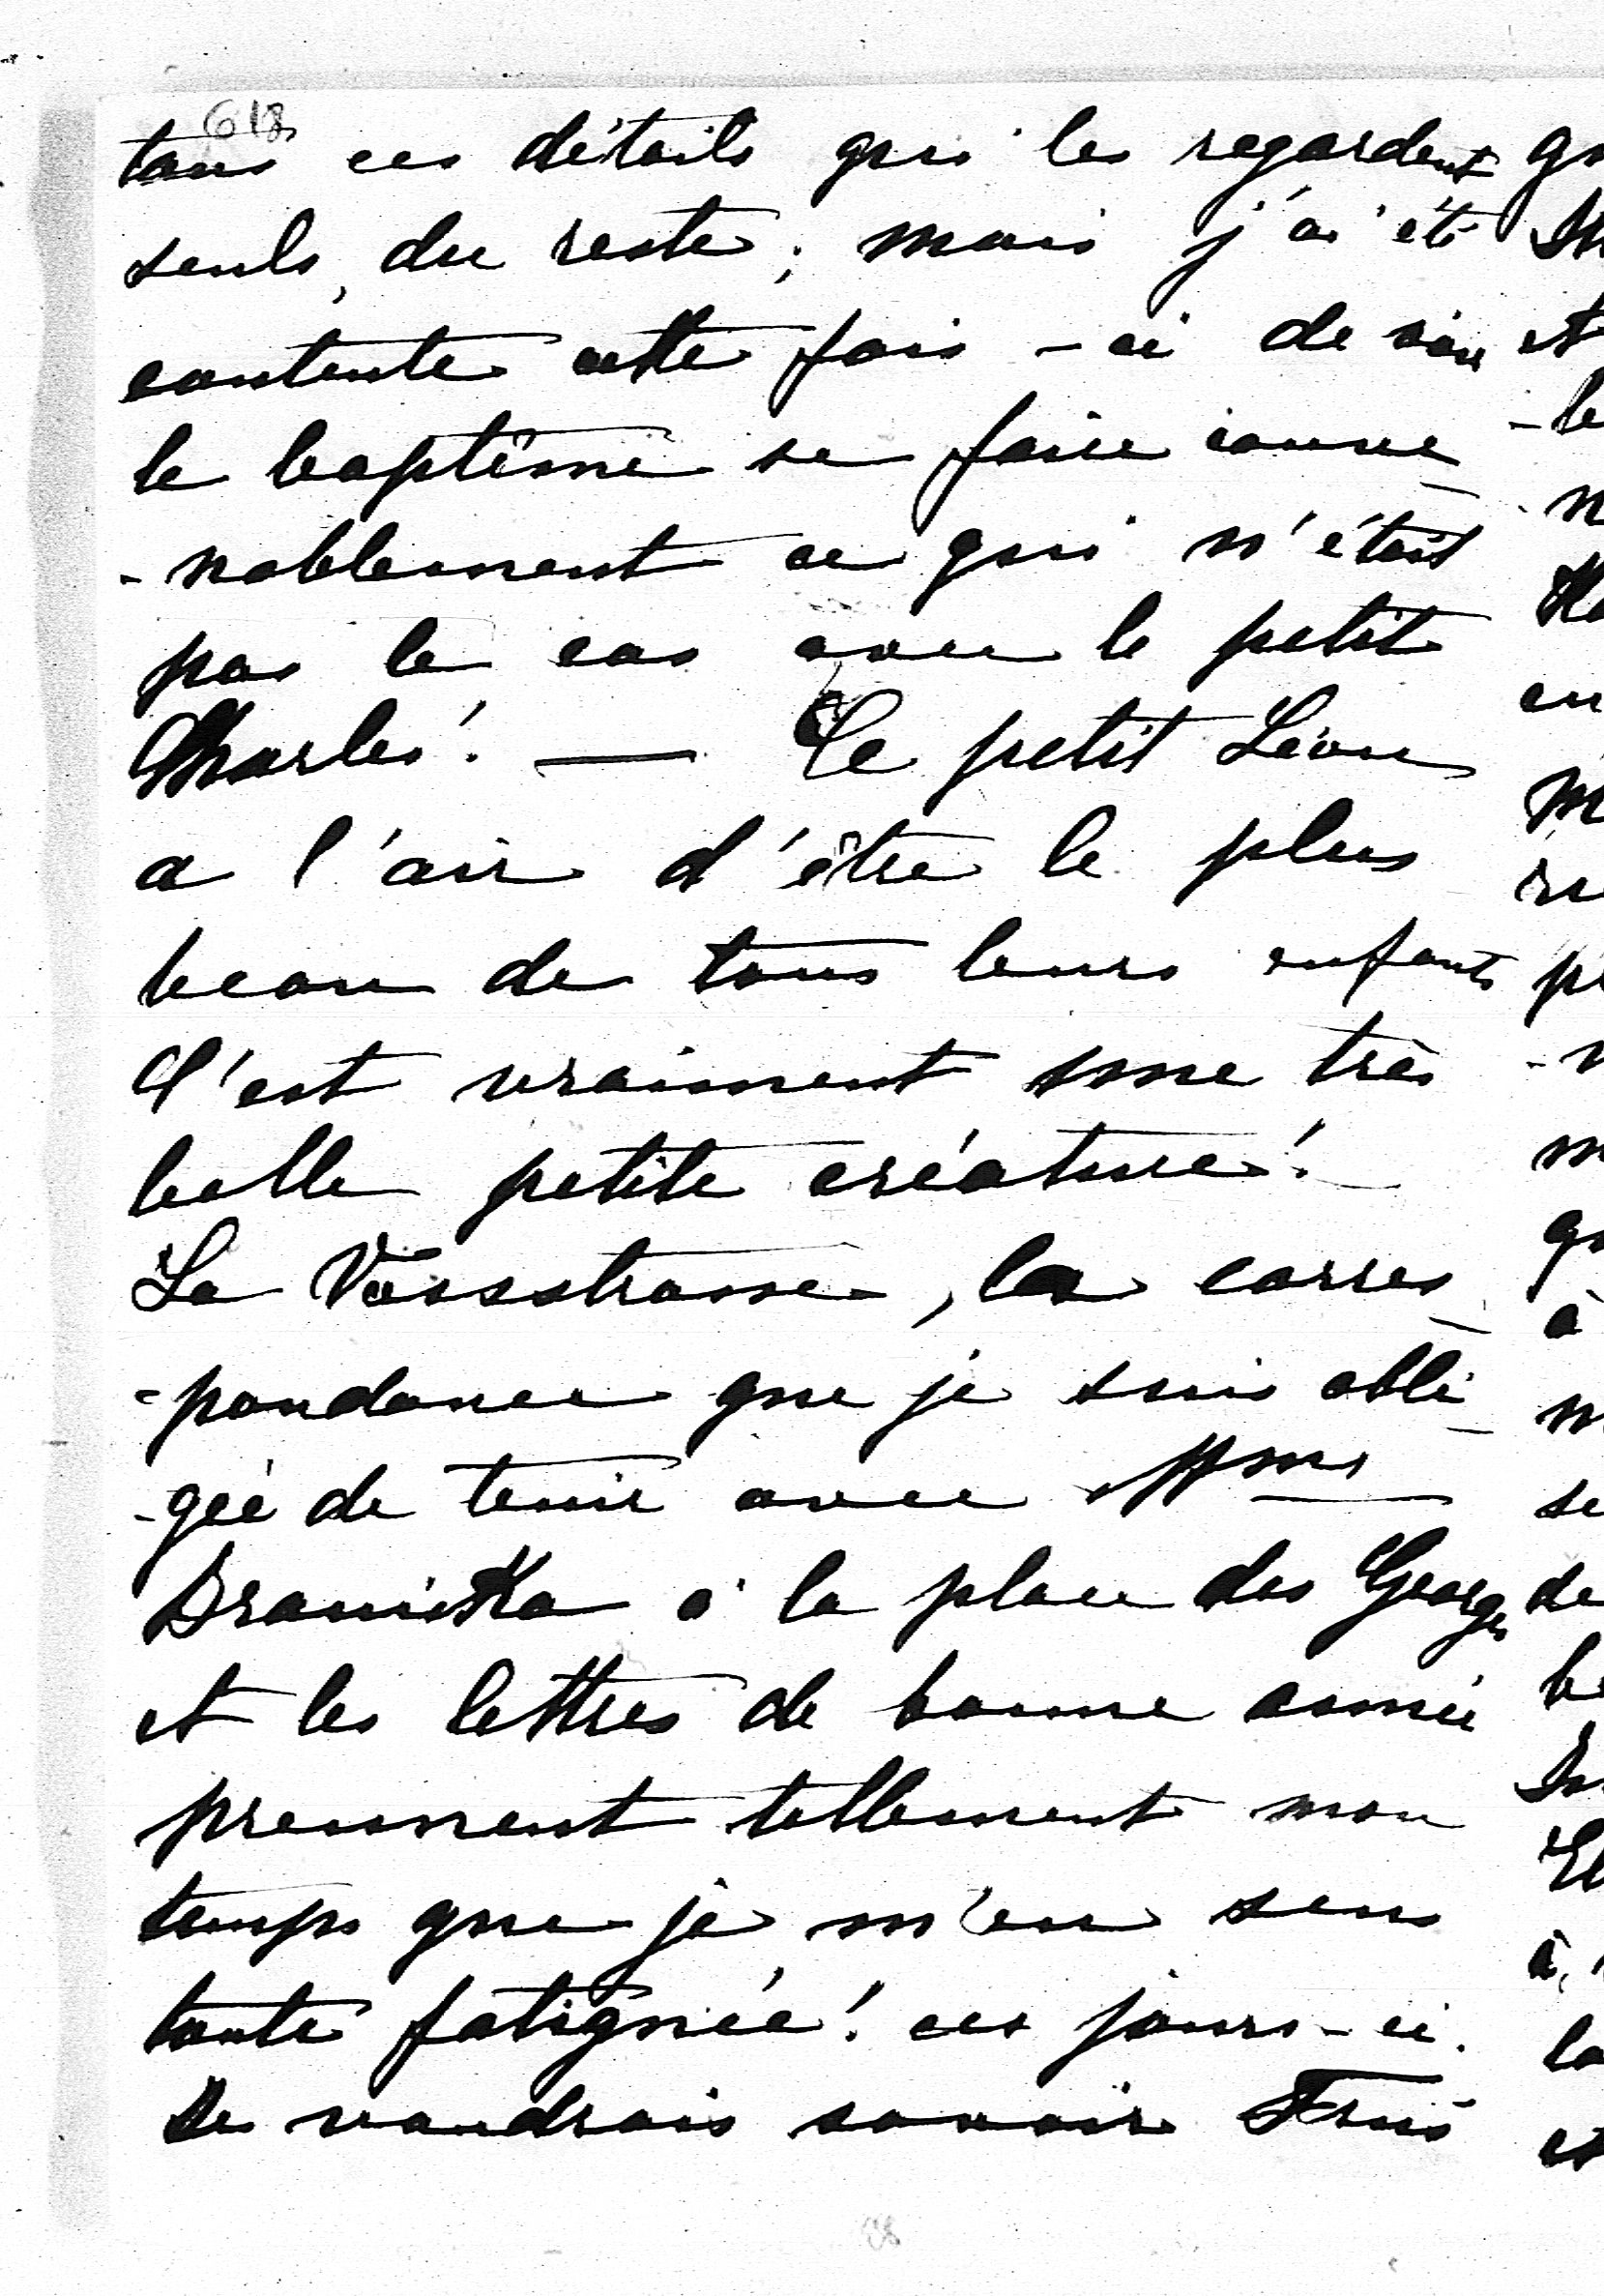 618
tous ces détails qui les regardent
seuls, du reste; mais j'ai été
contente cette fois-ci de voir
le baptême se faire conve-
-nablement ce qui n'était
pas le cas avec le petit
Charles! — Ce petit Léon
a l'air d'être le plus
beau de tous leurs enfants
C'est vraiment une très
belle petite créature!
La Vossstrasse, la corres-
-pondance que je suis obli-
-gée de tenir avec Mme
à la place des Georges
et les lettres de bonne année
prennent tellement mon
temps que je m'en sens
toute fatiguée! ces jours-ci.
Je voudrais savoir